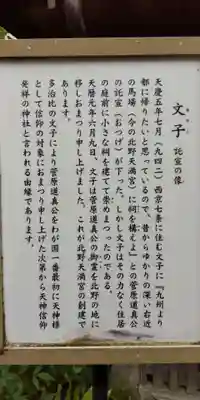 文子 託宣の像
あやこ
天慶五年七月（九四二）西京七条に住む文子に『九州より
都に帰りたいと思っているので、昔からゆかりの深い右近
の馬場（今の北野天満宮）に祠を構えよ』との菅原道真公
の託宣（おつげ）が下った。しかし文子はその力なく住居
の庭前に小さな祠を建てて崇めまつったのである。
天暦元年六月九日、文子は菅原道真公の御霊を北野の地に
移しおまつり申し上げました。これが北野天満宮の創建で
あります。
多治比の文子により菅原道真公をわが国一番最初に天神様
として信仰の対象におまつり申し上げた次第から天神信仰
発祥の神社と言われる由縁であります。